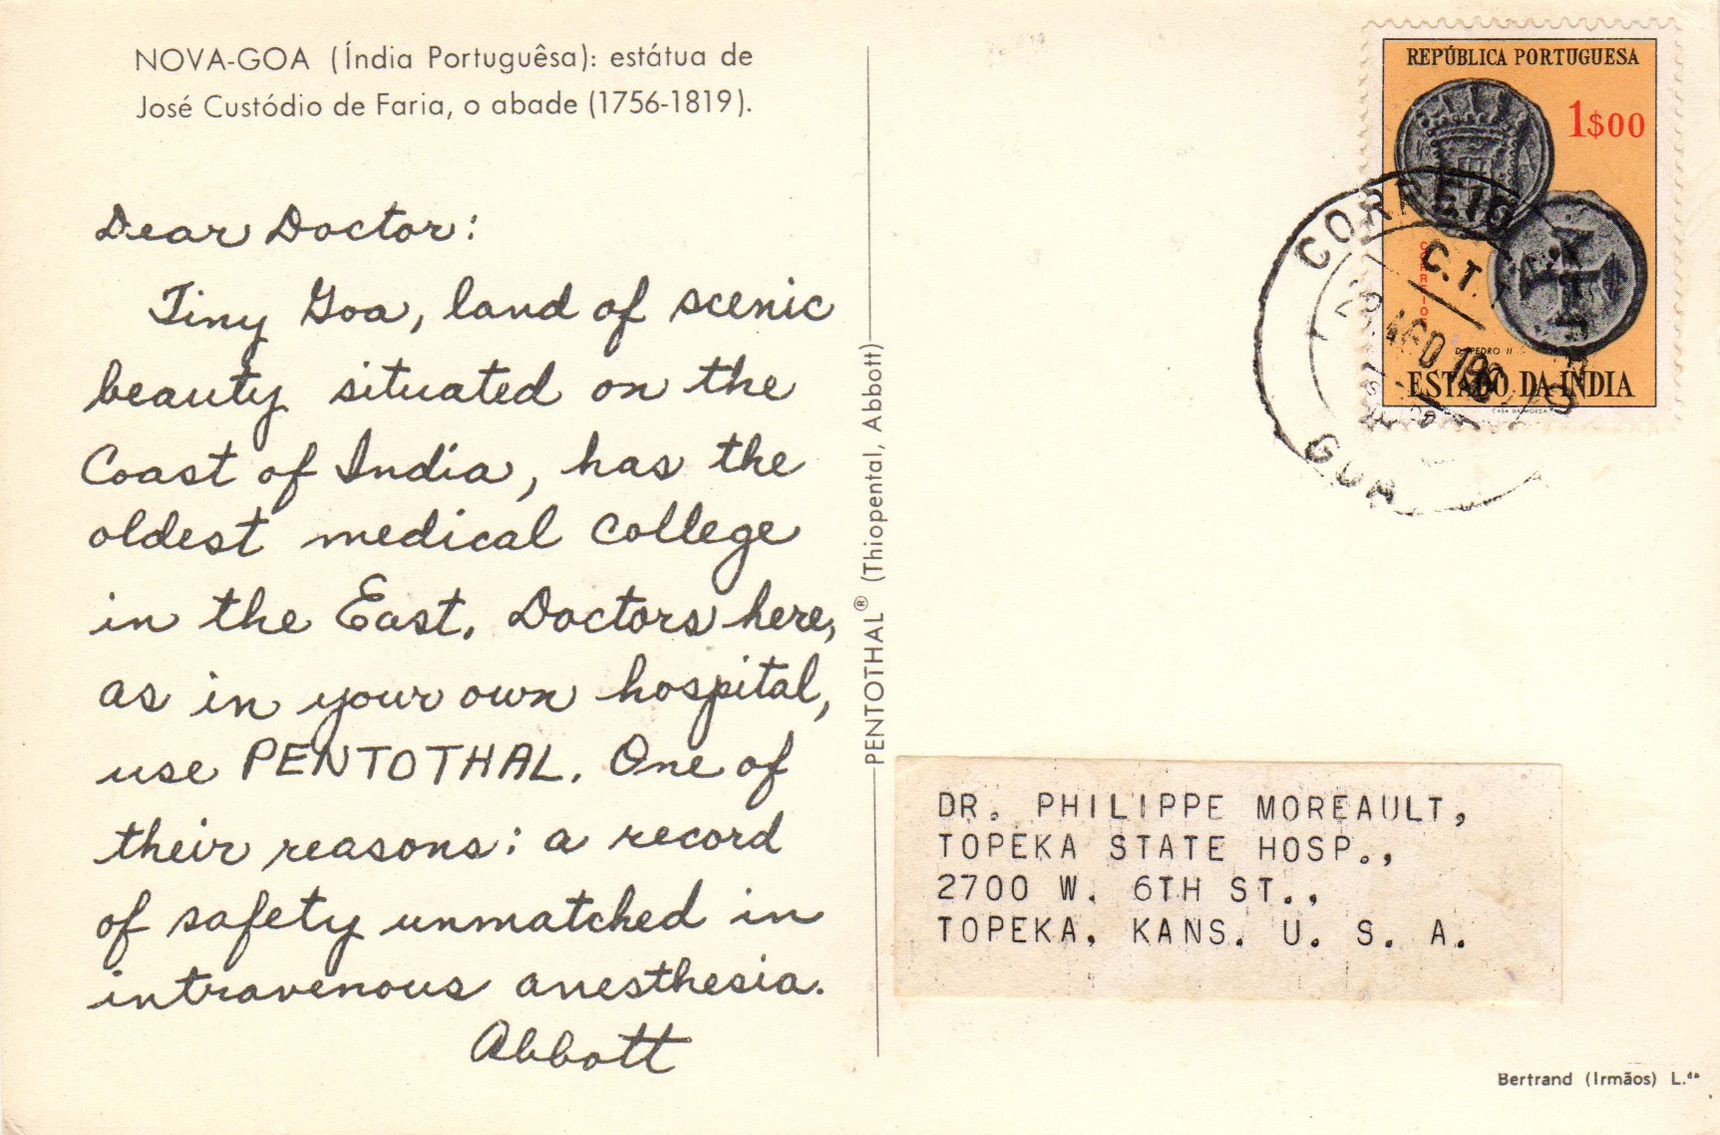 NOVA-GOA (Índia Portuguêsa): estátua de
José Custódio de Faria, o abade (1756-1819).
Dear Doctor:
Tiny Goa, land of scenic
beauty situated on the
Coast of India, has the
oldest medical college
in the East. Doctors here,
as in your own hospital,
use PENTOTHAL. One of
their reasons: a record
of safety unmatched in
intravenous anesthesia.
Abbott
PENTOTHAL® (Thiopental, Abbott)
REPÚBLICA PORTUGUESA
1$00
CORREIOS
D. PEDRO II
ESTADO DA INDIA
CASA DA MOEDA
CORREIO
C.T.
AGO
GOA
DR. PHILIPPE MOREAULT,
TOPEKA STATE HOSP.,
2700 W. 6TH ST.,
TOPEKA, KANS. U. S. A.
Bertrand (Irmãos) L.da